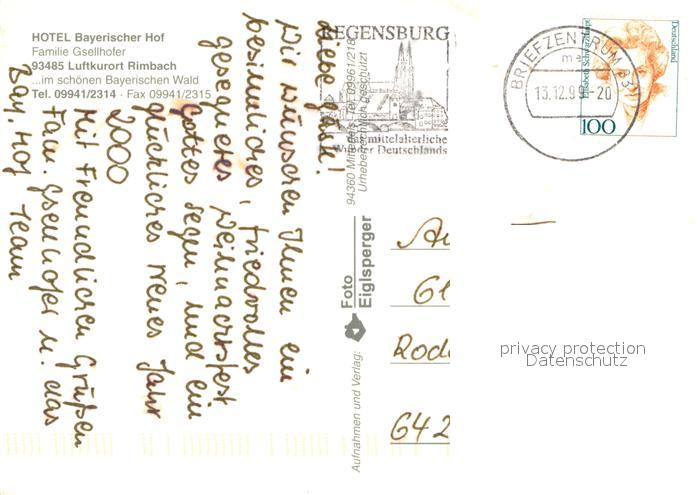 HOTEL Bayerischer Hof
Familie Gsellhofer
93485 Luftkurort Rimbach
...im schönen Bayerischen Wald
Tel. 09941/2314 · Fax 09941/2315
Liebe Gäste!
Wir wünschen Ihnen ein
besinnliches, friedvolles
gesegnetes Weihnachtsfest
Gottes Segen, und ein
glückliches neues Jahr
2000
Mit freundlichen Grüßen
Fam. Gsellhofer u. das
Bay. Hof Team
Aufnahmen und Verlag:
Foto
Eiglsperger
94360 Mitterfels, Tel. 09961/218
Urheberrechtlich geschützt
REGENSBURG
mittelalterliche
Wunder Deutschlands
BRIEFZENTRUM 93
13.12.9 -20
Deutschland
100
Rod
642
privacy protection
Datenschutz